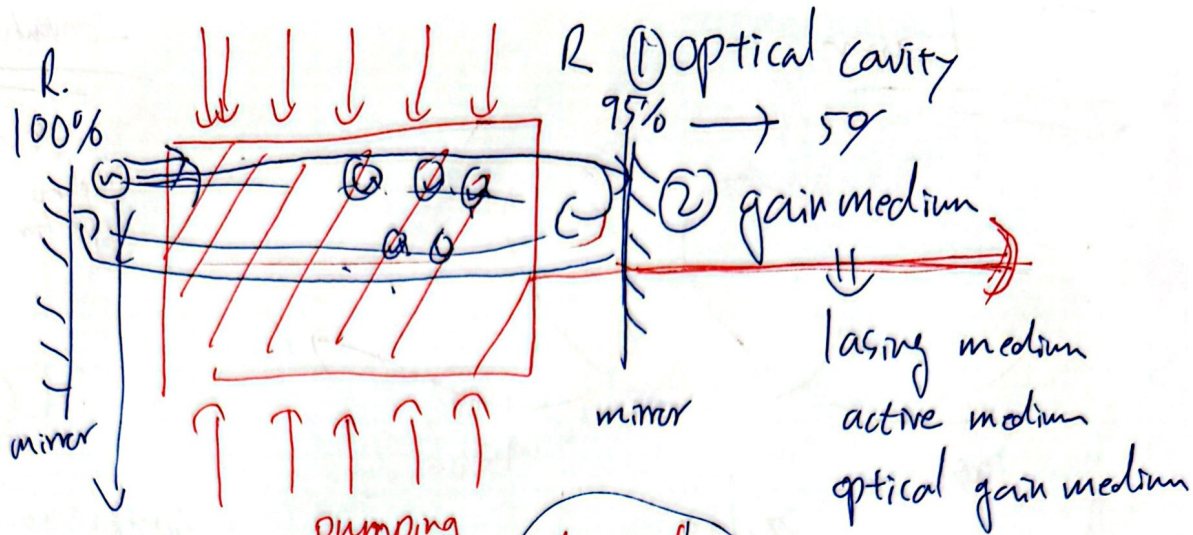 R.
100%
R ① optical cavity
95% → 5%
② gain medium
⇓
lasing medium
active medium
optical gain medium
mirror
mirror
pumping